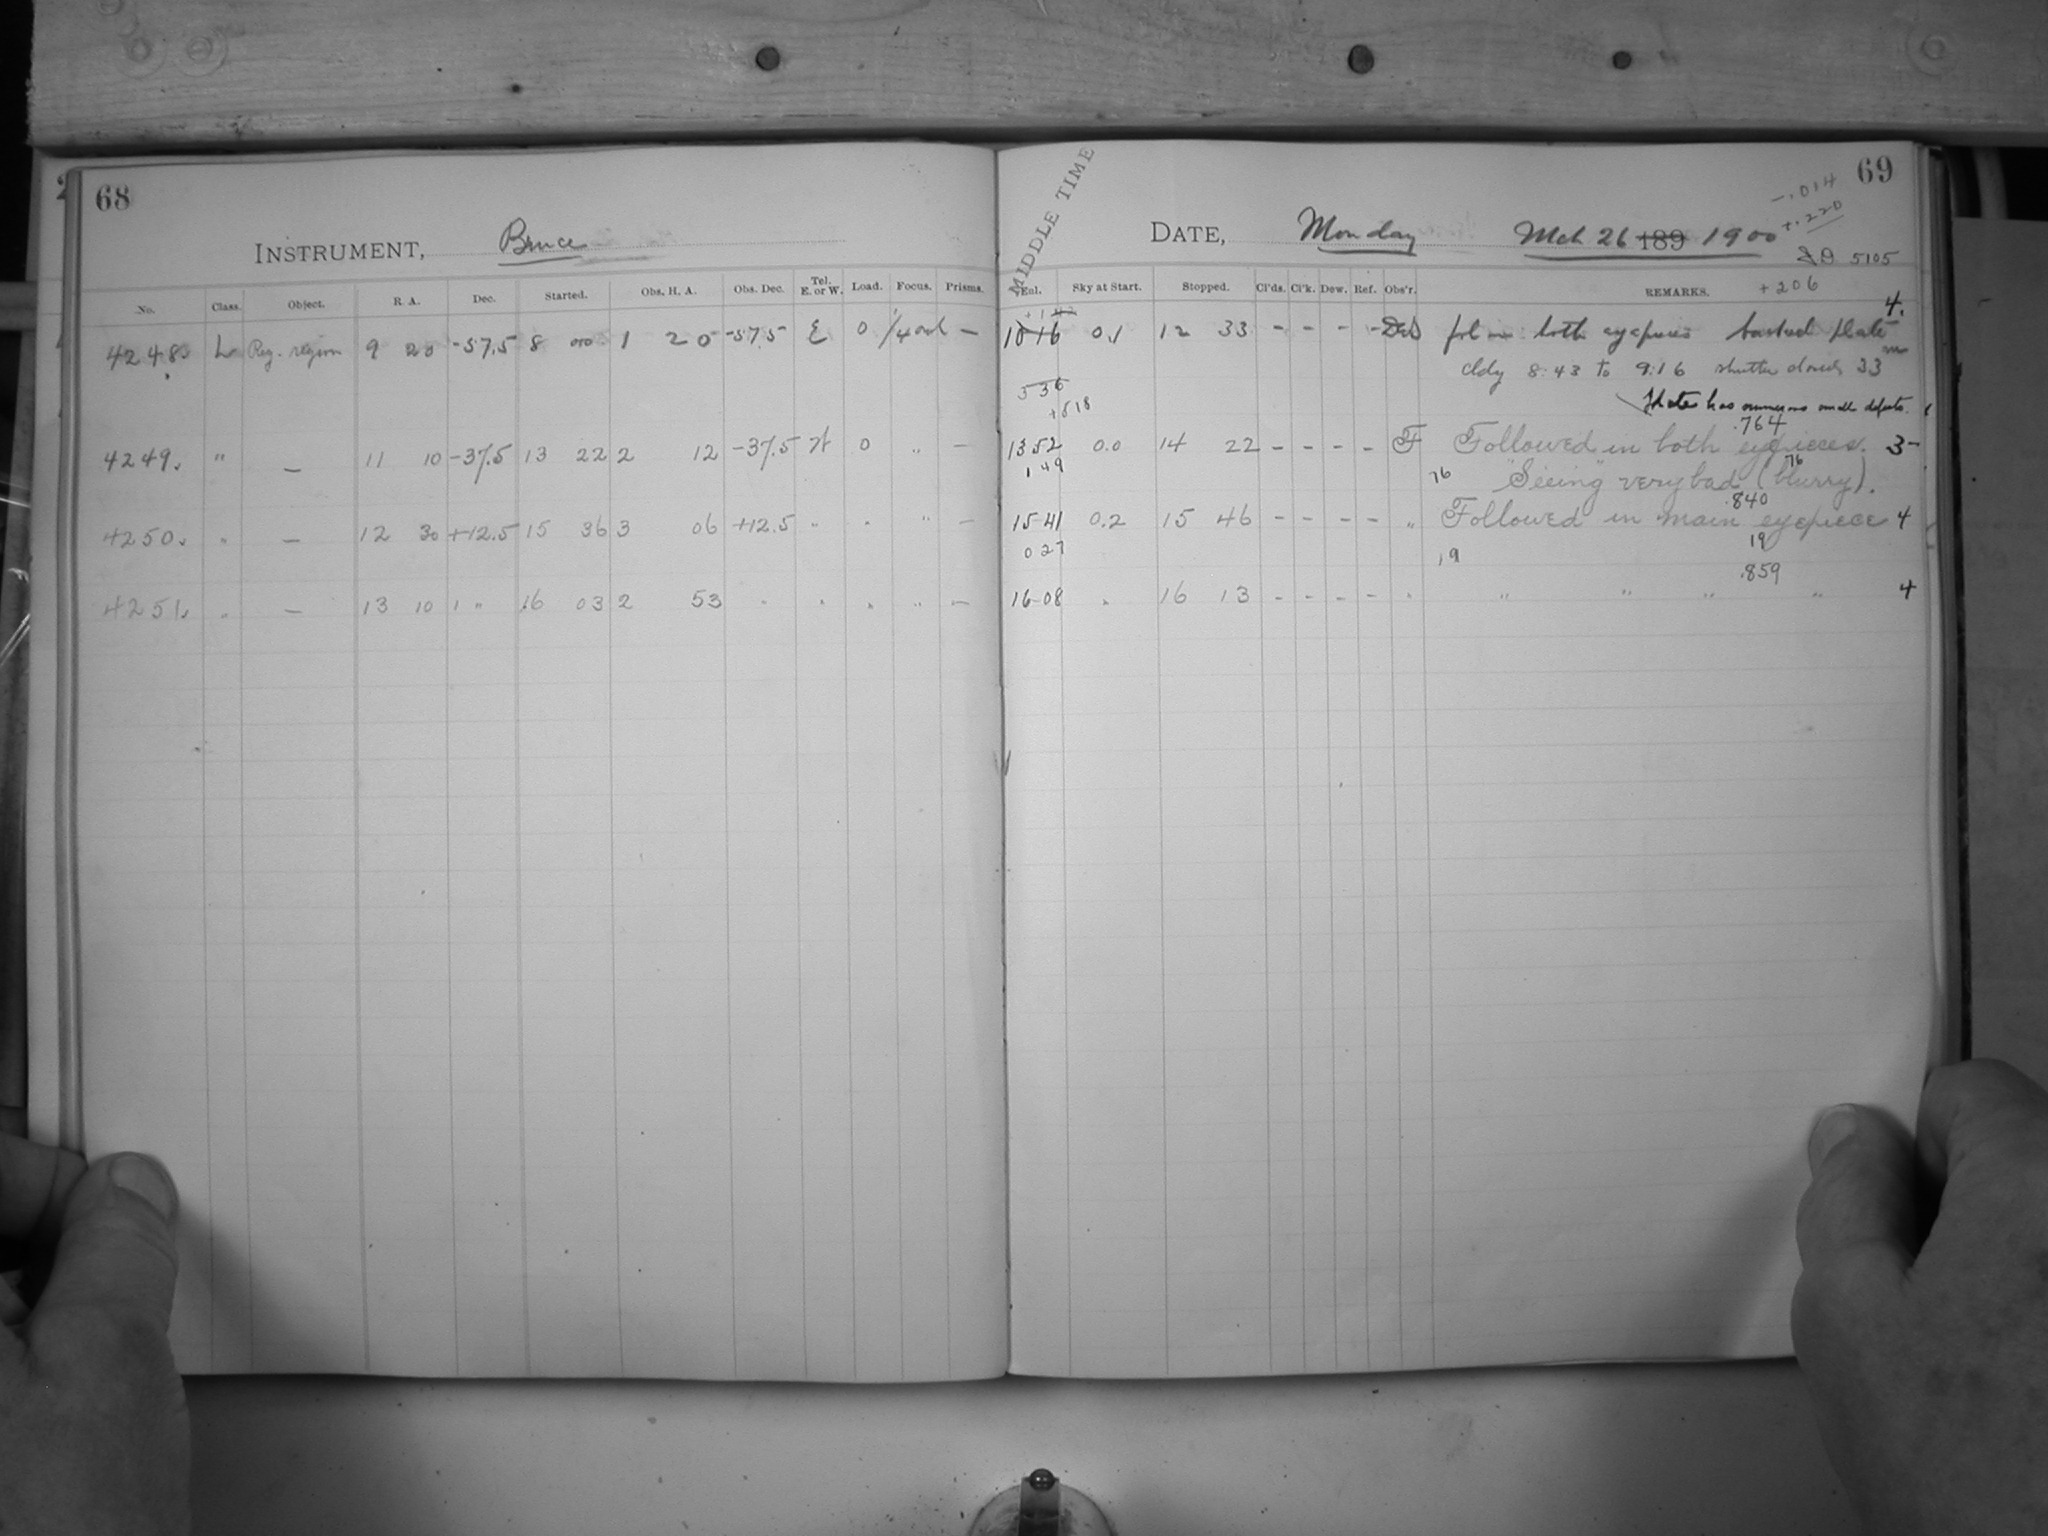 68
INSTRUMENT, Bruce
No. Class. Object. R. A. Dec. Started. Obs. H. A. Obs. Dec. Tel. E. or W. Load. Focus. Prisms.
4248. L Reg. region 9 20 -57.5 8 00 1 20 -57.5 E 0 —
4249. " — 11 10 -37.5 13 22 2 12 -37.5 W 0 " —
4250. " — 12 30 +12.5 15 36 3 06 +12.5 " " " —
4251. " — 13 10 " 16 03 2 53 " " " " —
69
MIDDLE TIME
-.014
+.220
DATE, Monday Mch 26 189 1900
5105
+206
Enl. Sky at Start. Stopped. Cl'ds. Cl'k. Dew. Ref. Obs'r. REMARKS.
10 16 0.1 12 33 - - - - fol in both eyepieces backed plate 4.
cldy 8:43 to 9:16 shutter closed 33 m
5 36
+518
Plate has numerous small defects.
.764
13 52 0.0 14 22 - - - - F Followed in both eyepieces. 3-
1 49
76 76
"Seeing" very bad (blurry).
.840
15 41 0.2 15 46 - - - - " Followed in main eyepiece 4
0 27
19 19
.859
16 08 " 16 13 - - - - " " " " " 4